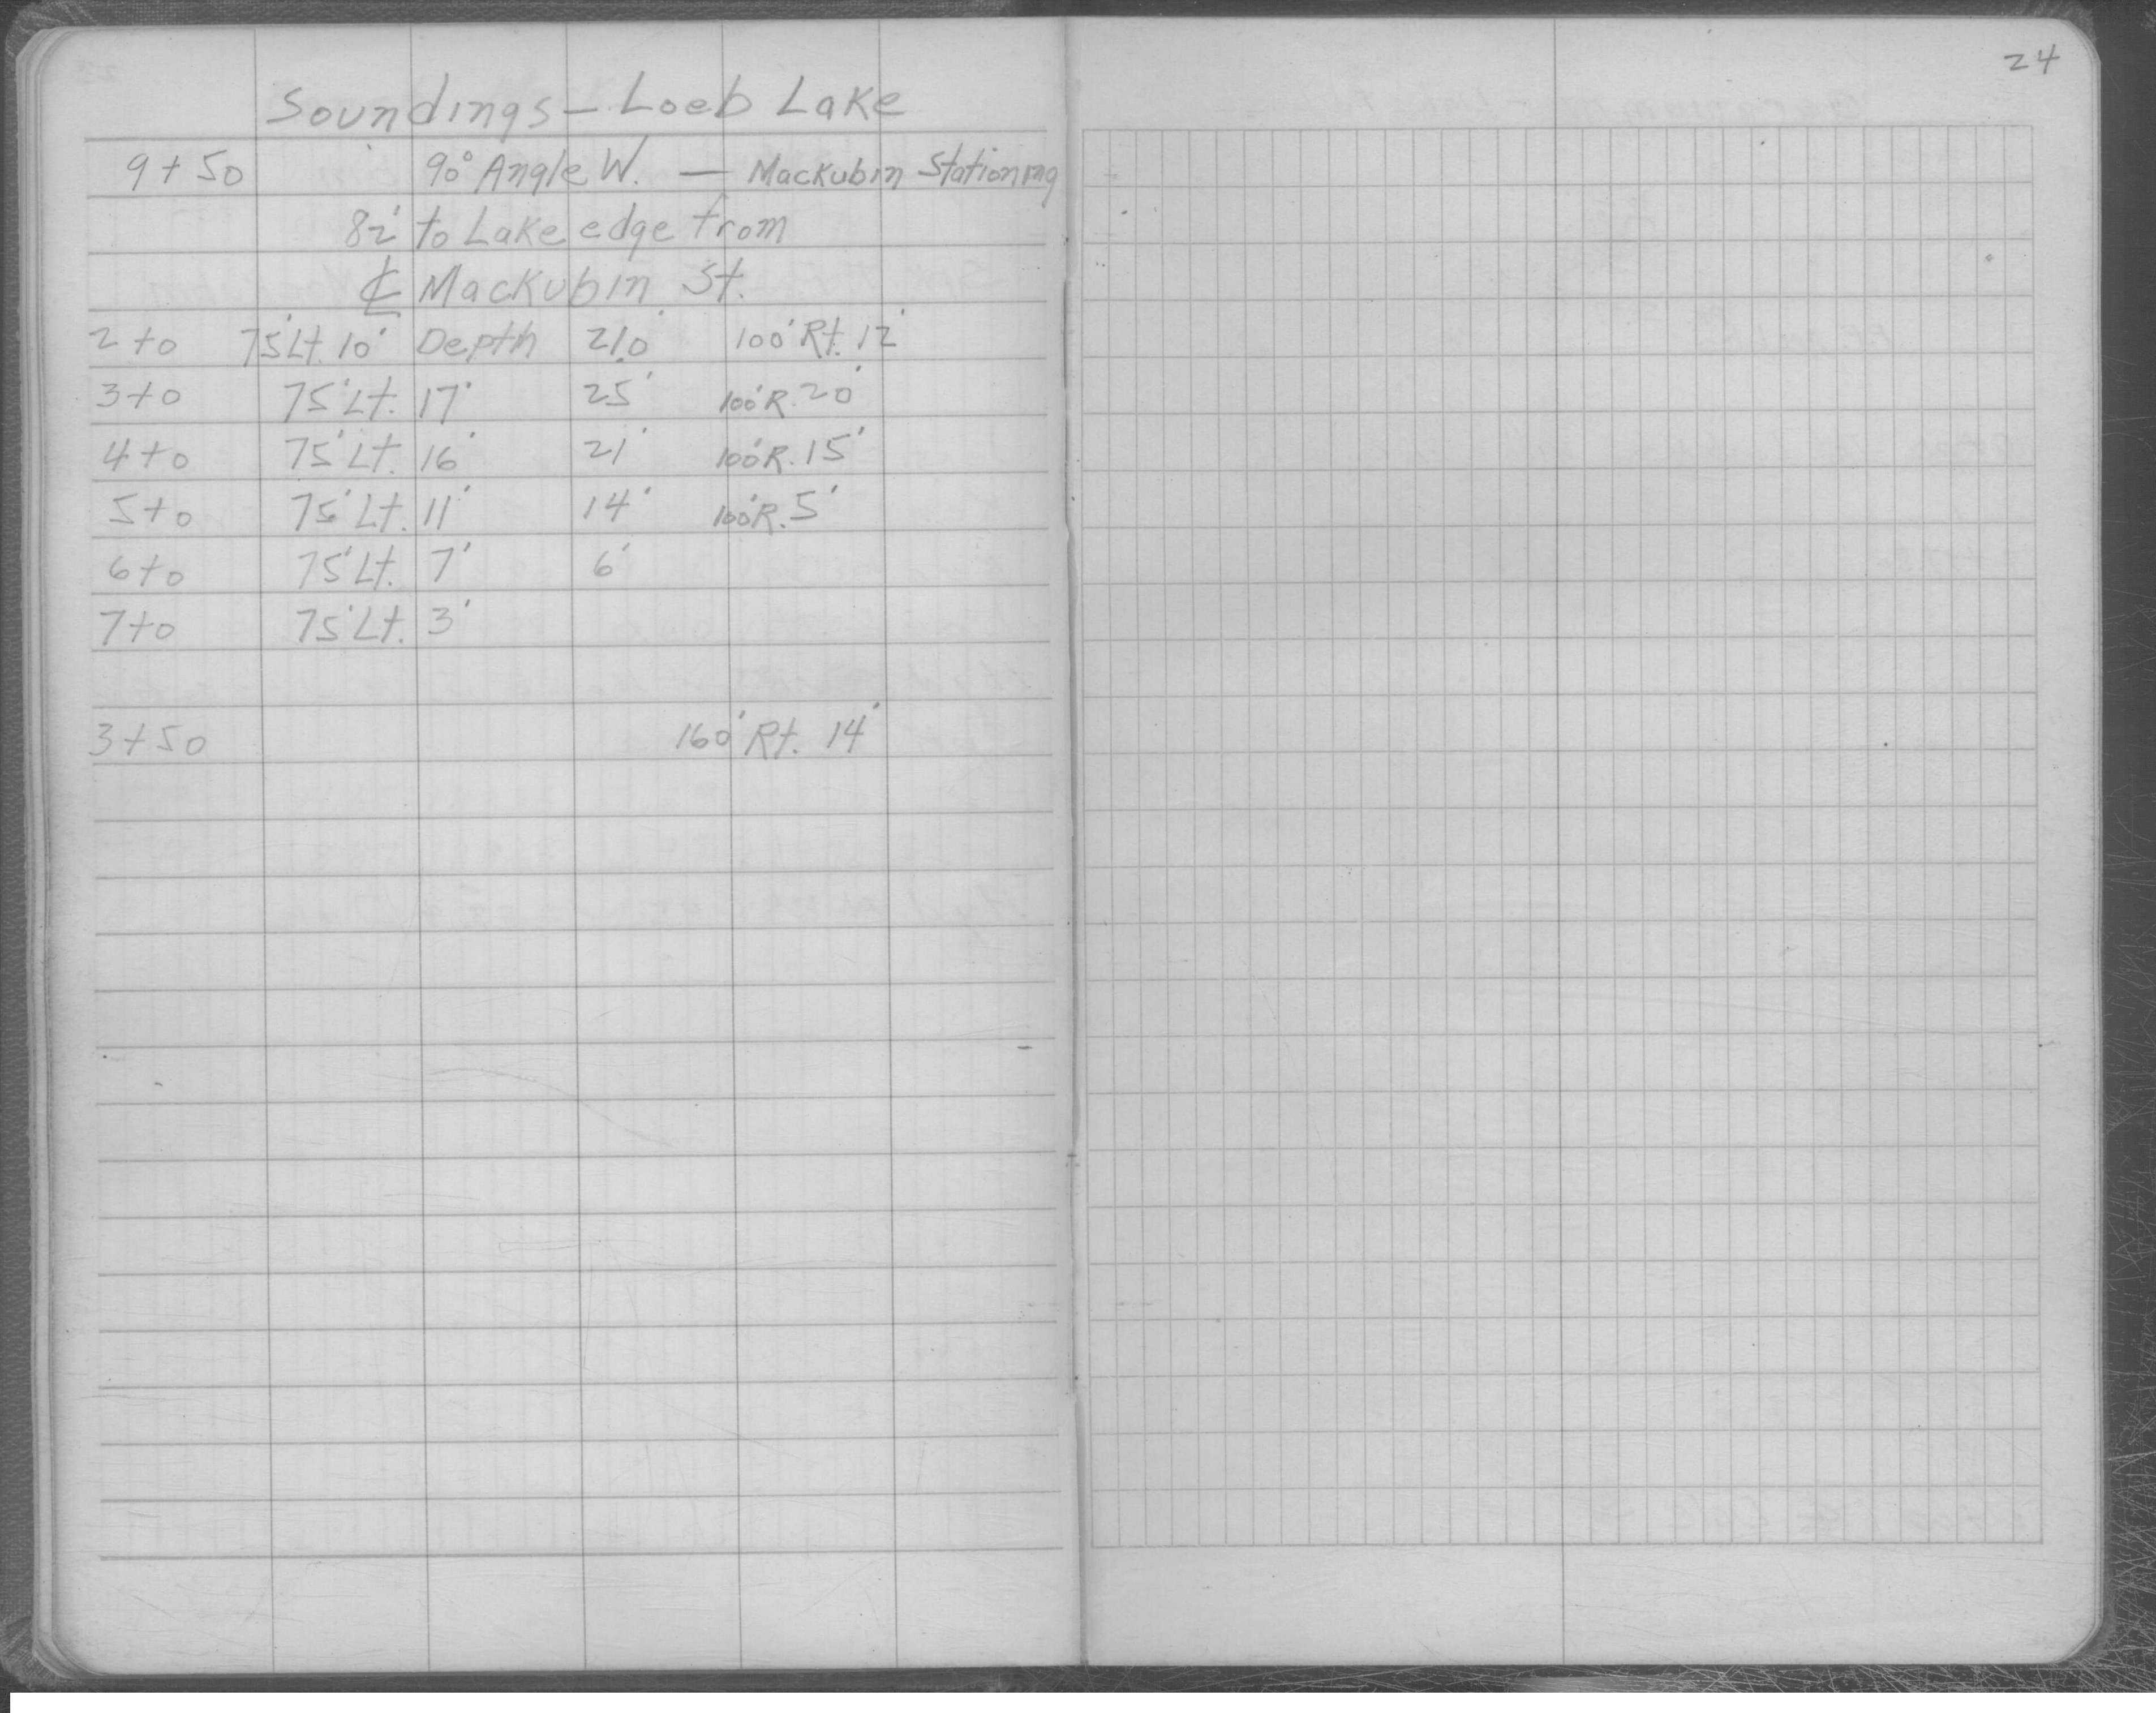 24
Soundings - Loeb Lake
9+50 90° Angle W. — Mackubin Stationing
82' to Lake edge from
℄ Mackubin St.
2+0 75' Lt. 10' Depth 21.0' 100' Rt. 12'
3+0 75' Lt. 17' 25' 100' R. 20'
4+0 75' Lt. 16' 21' 100' R. 15'
5+0 75' Lt. 11' 14' 100' R. 5'
6+0 75' Lt. 7' 6'
7+0 75' Lt. 3'
3+50 160' Rt. 14'